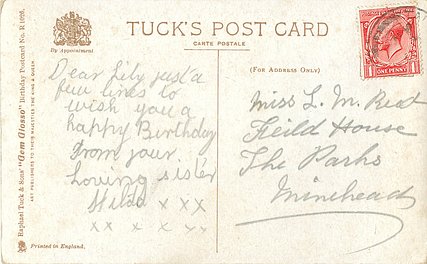 TUCK'S POST CARD
CARTE POSTALE
By Appointment
(FOR ADDRESS ONLY)
Dear Lily just a
few lines to
wish you a
happy Birthday
From your
Loving sister
Hilda x x x
x x x x x x
Miss L. M. Reed
Feild House
The Parks
Minehead
1 ONE PENNY 1
Raphael Tuck & Sons' "Gem Glosso" Birthday Postcard No. R 1020.
ART PUBLISHERS TO THEIR MAJESTIES THE KING & QUEEN
Printed in England.